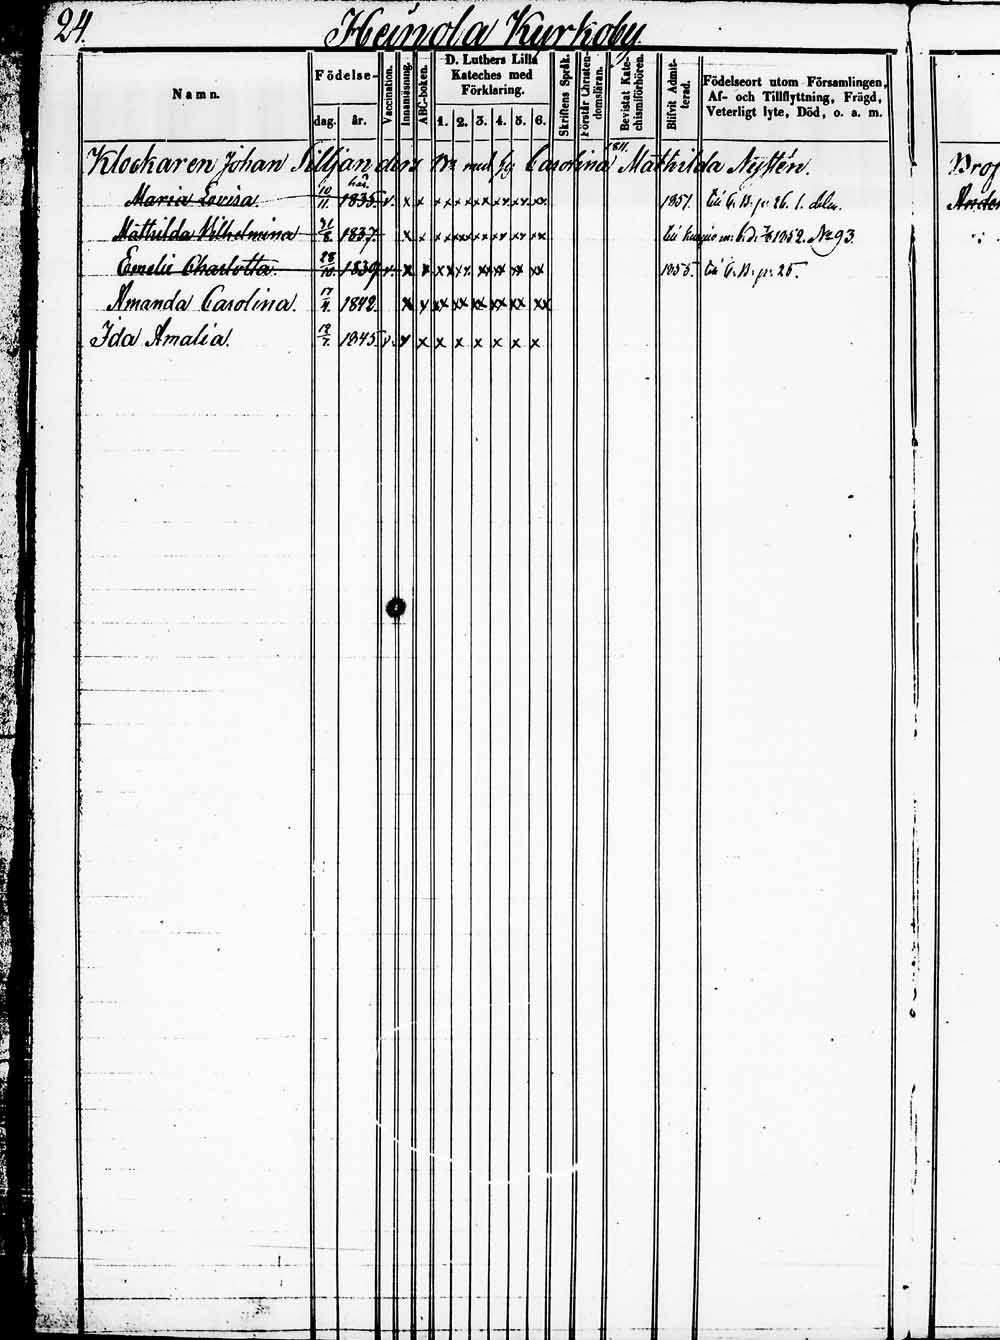 24.
Heinola Kyrkoby.
Namn.
Födelse-
dag.
år.
Vaccination.
Innanläsning.
ABC-boken.
D. Luthers Lilla
Kateches med
Förklaring.
1. 2. 3. 4. 5. 6.
Skriftens Språk.
Förstår Christen-
domsläran.
Bevistat Kate-
chismiförhören.
Blifvit Admit-
terad.
Födelseort utom Församlingen,
Af- och Tillflyttning, Frägd,
Veterligt lyte, Död, o. a. m.
Klockaren Johan Silljanders med Carolina Mathilda Nyttén.
Maria Lovisa 10/11 1835 v. x x x x x x x x 1851.
Mathilda Vilhelmina 1837 x x 1852. No 93.
Emelie Charlotta 28/10 1839 v. x x 1855.
Amanda Carolina. 17/4 1842. x x xx xx xx xx xx xx
Ida Amalia. 12/7 1845. v. x x x x x x x x
Prof
Ander